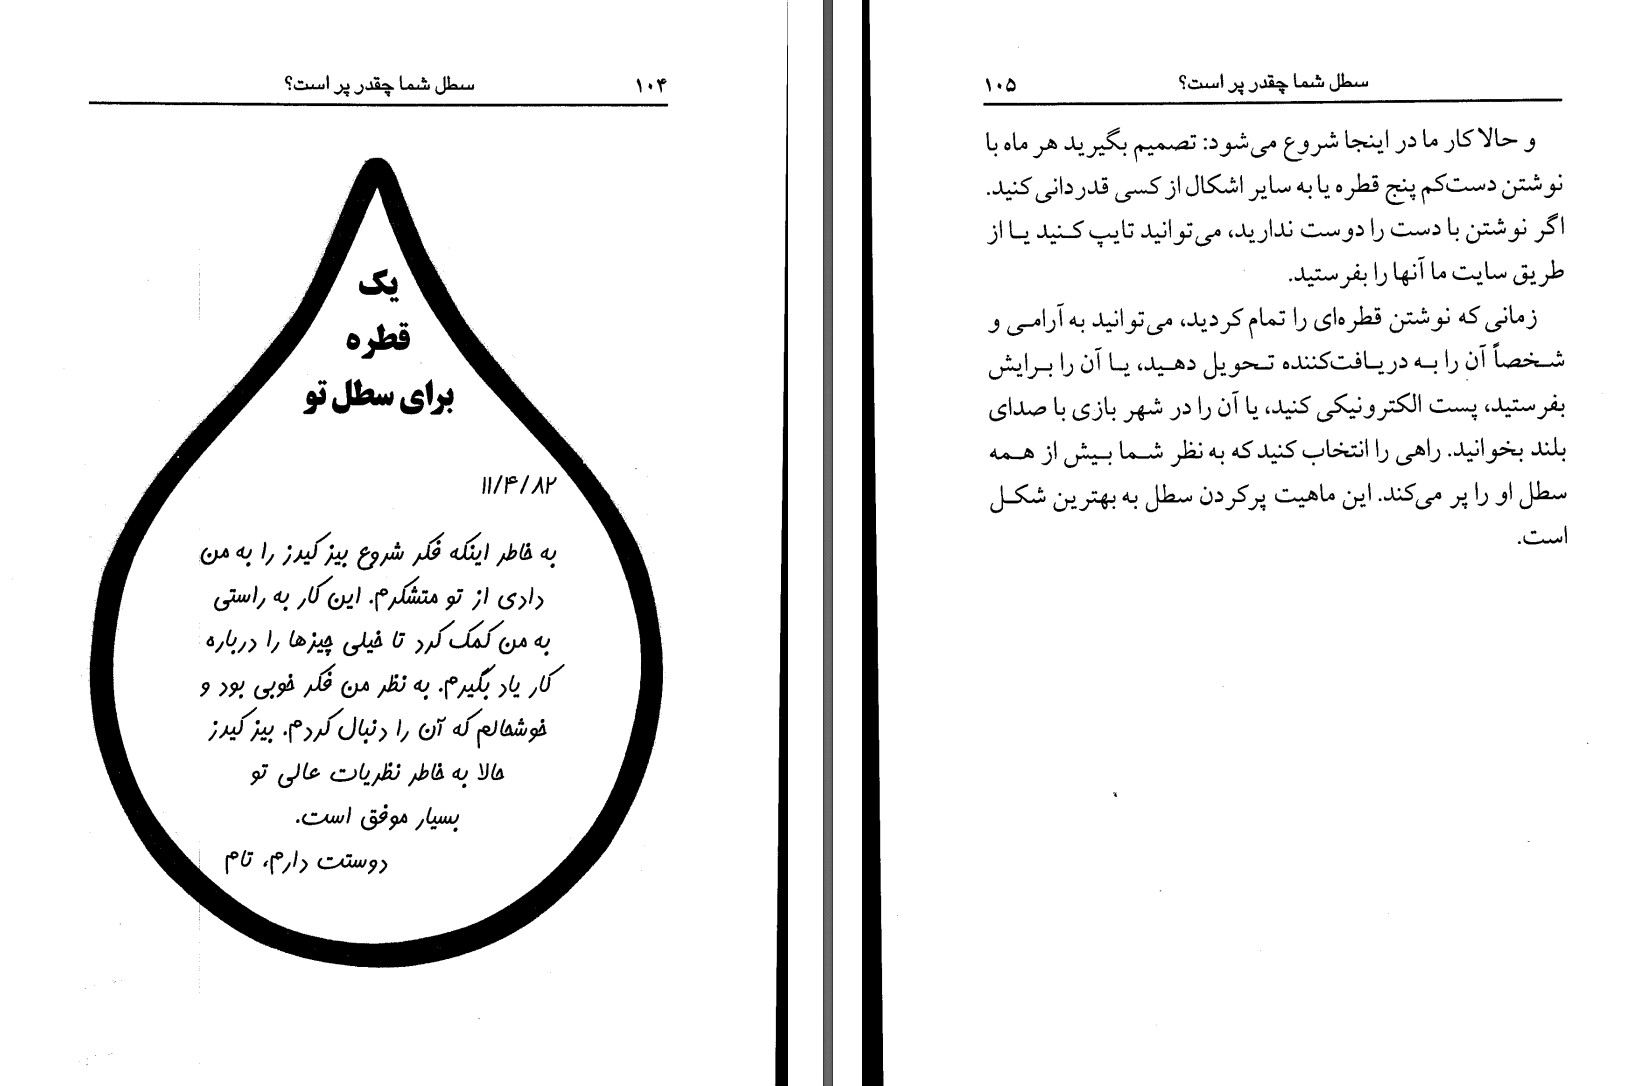 ۱۰۴ سطل شما چقدر پر است؟
یک
قطره
برای سطل تو
۱۱/۴/۸۲
به خاطر اینکه فکر شروع بیزکیدز را به من
دادی از تو متشکرم. این کار به راستی
به من کمک کرد تا خیلی چیزها را درباره
کار یاد بگیرم. به نظر من فکر خوبی بود و
خوشحالم که آن را دنبال کردم. بیزکیدز
حالا به خاطر نظریات عالی تو
بسیار موفق است.
دوستت دارم، تام
سطل شما چقدر پر است؟ ۱۰۵
و حالا کار ما در اینجا شروع می‌شود: تصمیم بگیرید هر ماه با
نوشتن دست‌کم پنج قطره یا به سایر اشکال از کسی قدردانی کنید.
اگر نوشتن با دست را دوست ندارید، می‌توانید تایپ کنید یا از
طریق سایت ما آنها را بفرستید.
زمانی که نوشتن قطره‌ای را تمام کردید، می‌توانید به آرامی و
شخصاً آن را به دریافت‌کننده تحویل دهید، یا آن را برایش
بفرستید، پست الکترونیکی کنید، یا آن را در شهر بازی با صدای
بلند بخوانید. راهی را انتخاب کنید که به نظر شما بیش از همه
سطل او را پر می‌کند. این ماهیت پرکردن سطل به بهترین شکل
است.